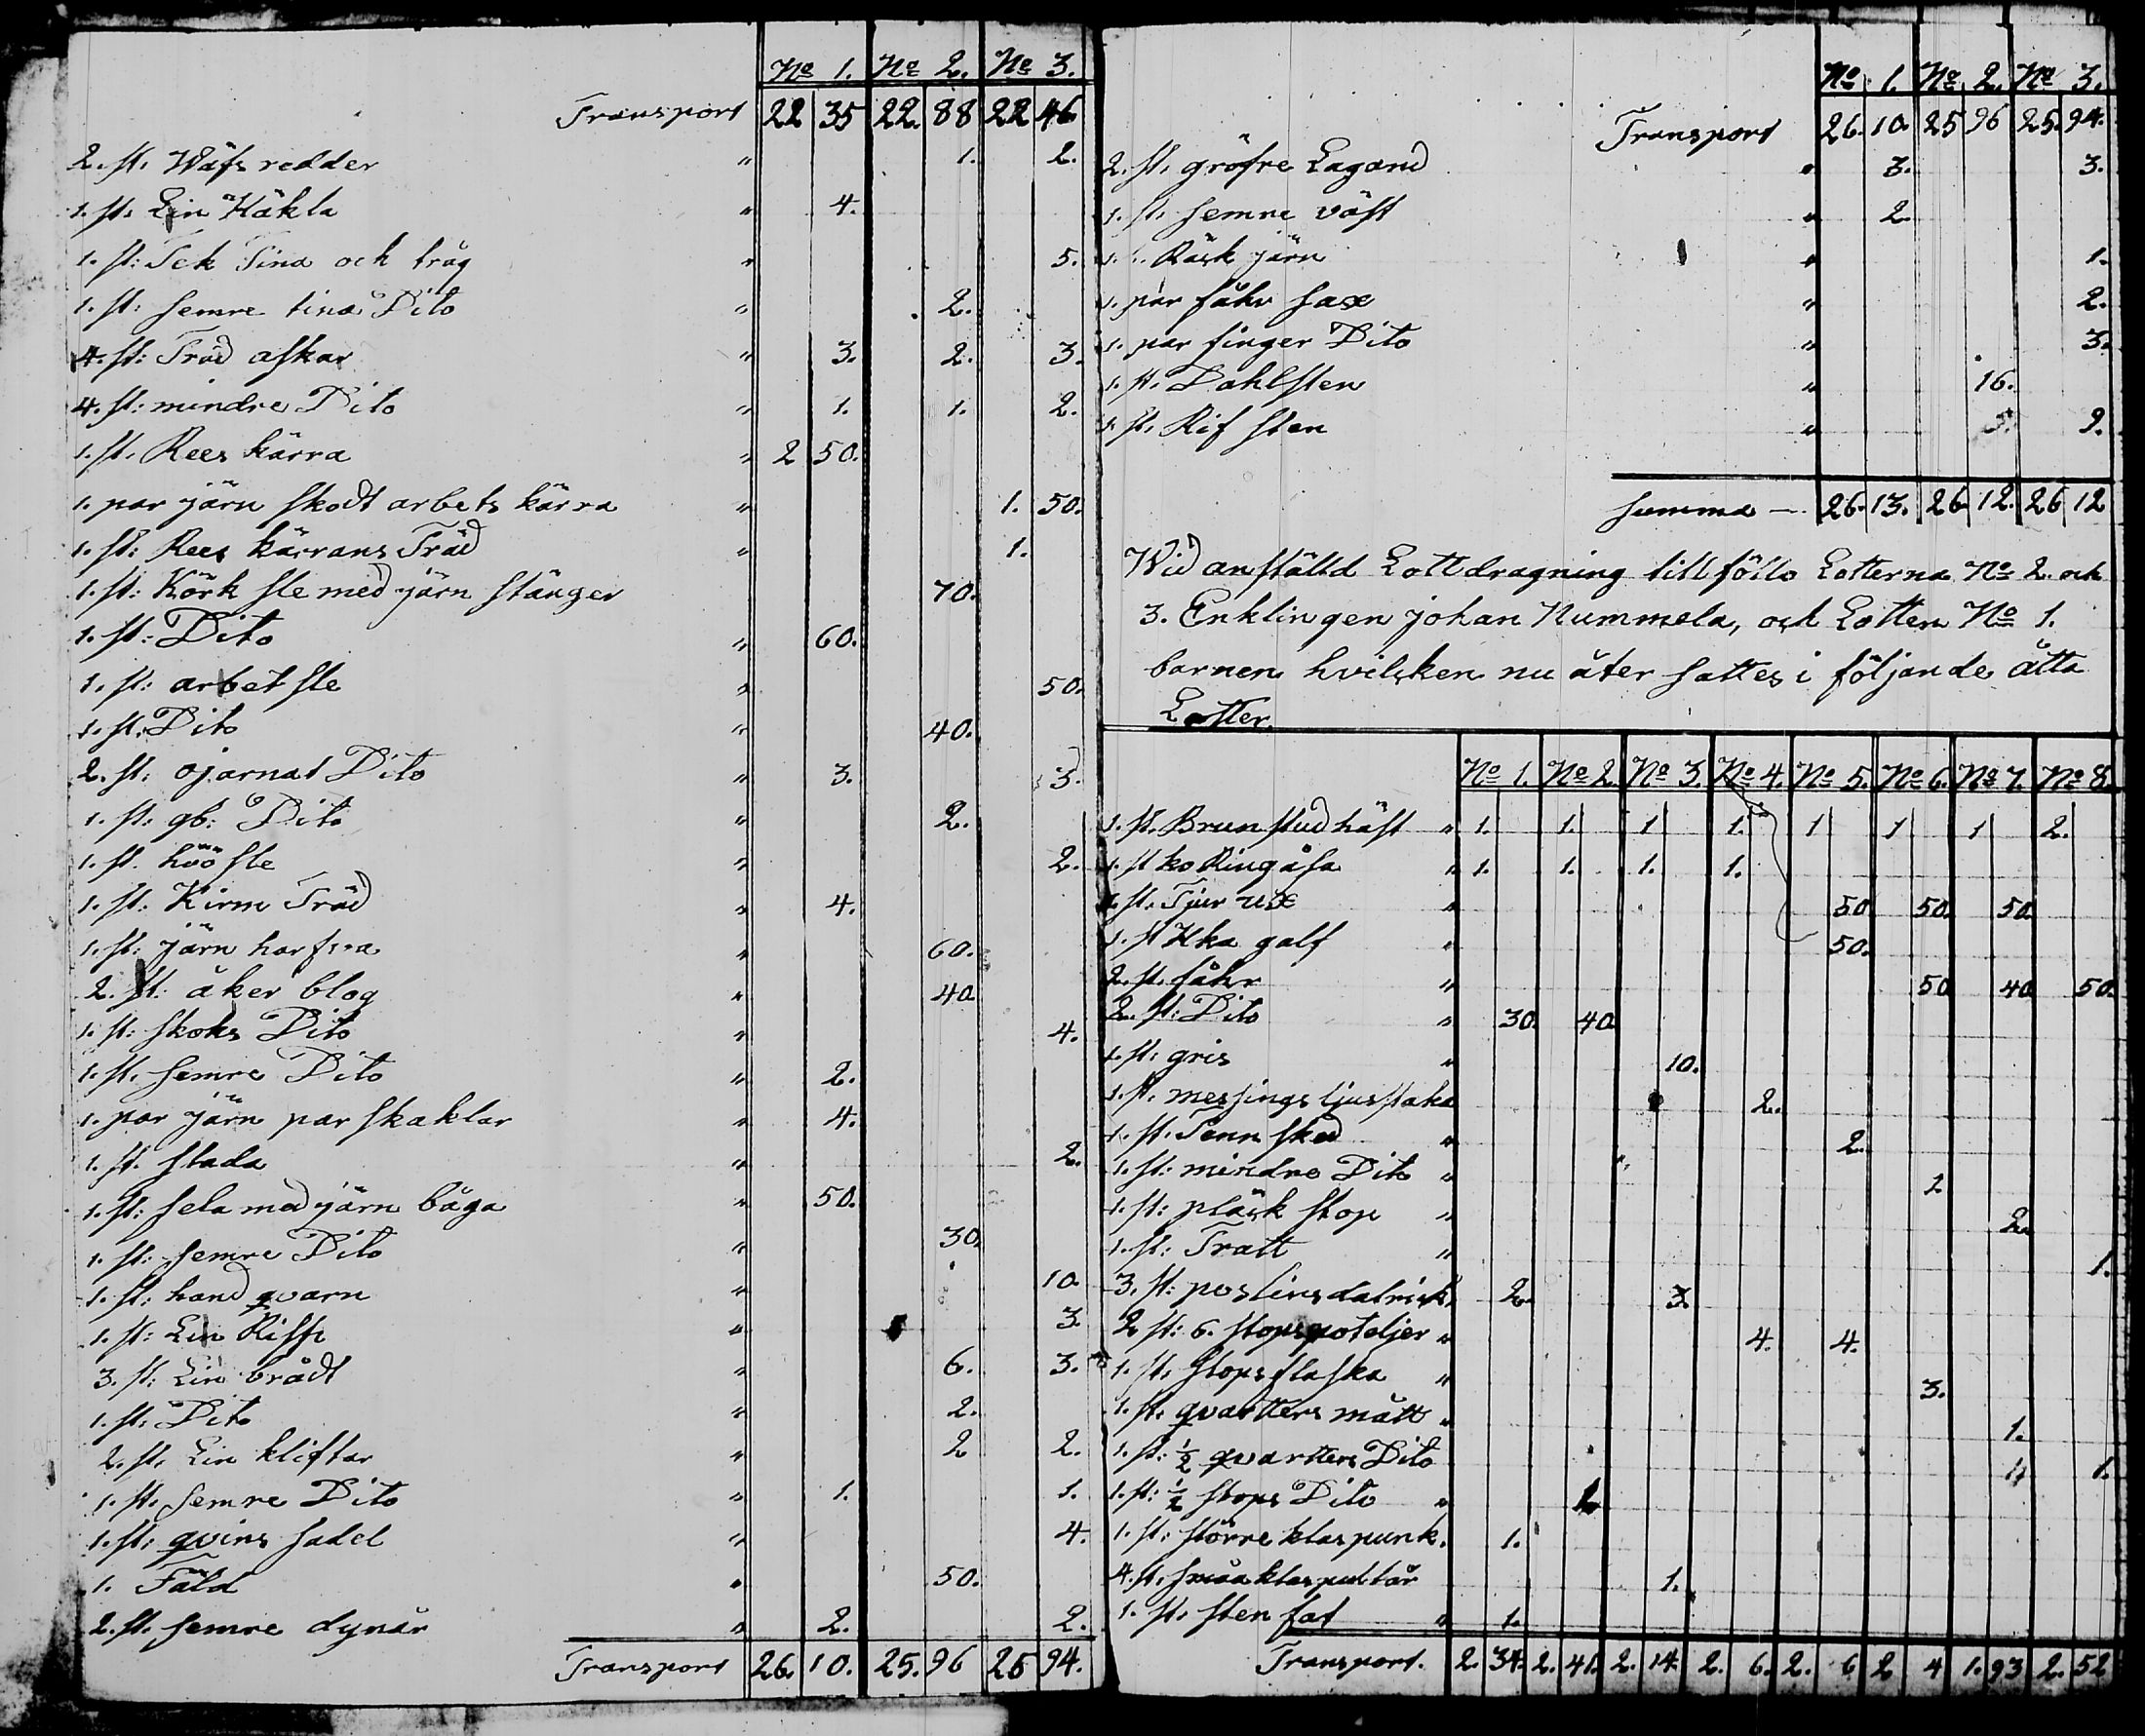 No 1. No 2. No 3.
Transport 22 35 22. 88 22 46.
2. st. Wäfs redder " 1. 2.
1. st. Lin Häkla " 4.
1. st: Tek Tina och tråg " 5.
1. st: semre tina Dito " 2.
4. st: Träd askar " 3. 2. 3.
4. st: mindre Dito " 1. 1. 2.
1. st. Rees kärra " 2 50.
1. par järn skodt arbets kärra " 1. 50.
1. st: Rees kärrans Träd " 1.
1. st: Körk sle med järn stänger 70.
1. st: Dito " 60.
1. st: arbet sle " 50.
1. st: Dito " 40.
2. st: ojarnat Dito " 3. 3.
1. st: gb: Dito " 2.
1. st. höö sle " 2.
1. st: Kirm Träd " 4.
1. st: järn harfva " 60.
2. st: åker blog " 40
1. st: skoks Dito " 4.
1. st. semre Dito " 2.
1. par järn par skaklar " 4.
1. st. slada " 2.
1. st: sela med järn båga " 50.
1. st: semre Dito " 30.
1. st: hand qvarn " 10.
1. st: Lin Riste " 3.
3. st: Lin brådt " 6. 3.
1. st: Dito " 2.
2. st. Lin kliftar " 2 2.
1. st. semre Dito " 1. 1.
1. st: qvins sadel " 4.
1. Fäld " 50.
2. st. semre dynår " 2. 2.
Transport 26. 10. 25. 96 25 94.
No 1. No 2. No 3.
Transport 26. 10. 25 96 25. 94.
2. st. gröfre Lagand " 3. 3.
1. st. semre väst " 2
1. st. Räsk järn " 1.
1. par fåhr sax " 2.
1. par finger Dito " 3.
1. st. Dahlsten " 16.
1. st. Rif sten "
Summa — 26. 13. 26 12. 26 12
Wid anställd Lottdragning tillföllo Lotterna No 2. och
3. Enklingen johan Nummela, och Lotten No 1.
barnen hvilcken nu åter sattes i följande åtta
Lotter.
No 1. No 2. No 3. No 4. No 5. No 6. No 7. No 8.
1. st. Brun stud häst " 1. 1. 1 1. 1 1 1 2.
1. st ko Ringåsa " 1. 1. 1. 1.
1. st. Tjur ux " 50 50. 50
1. st Kka galf " 50.
2. st. fåhr " 50 40 50.
2. st: Dito " 30. 40.
1. st. gris " 10.
1. st. messings ljusstaka 2.
1. st. Tenn sked " 2.
1. st: mindre Dito " 2
1. st: pläck stop " 2.
1. st: Tratt " 1.
3. st: poslins dalrick. 2. 3.
2 st: 6. stops poteljer " 4. 4.
1. st. stops flaska " 3.
1. st. qvartters mått " 1.
1. st: ½ qvartters Dito 1.
1. st: ½ stops Dito " 1
1. st: större klas punk. 1.
4. st. småa klas puttår 1.
1. st. sten fat " 1.
Transport. 2. 34. 2. 41. 2. 14. 2. 6. 2. 6 2 4 1. 93 2. 52